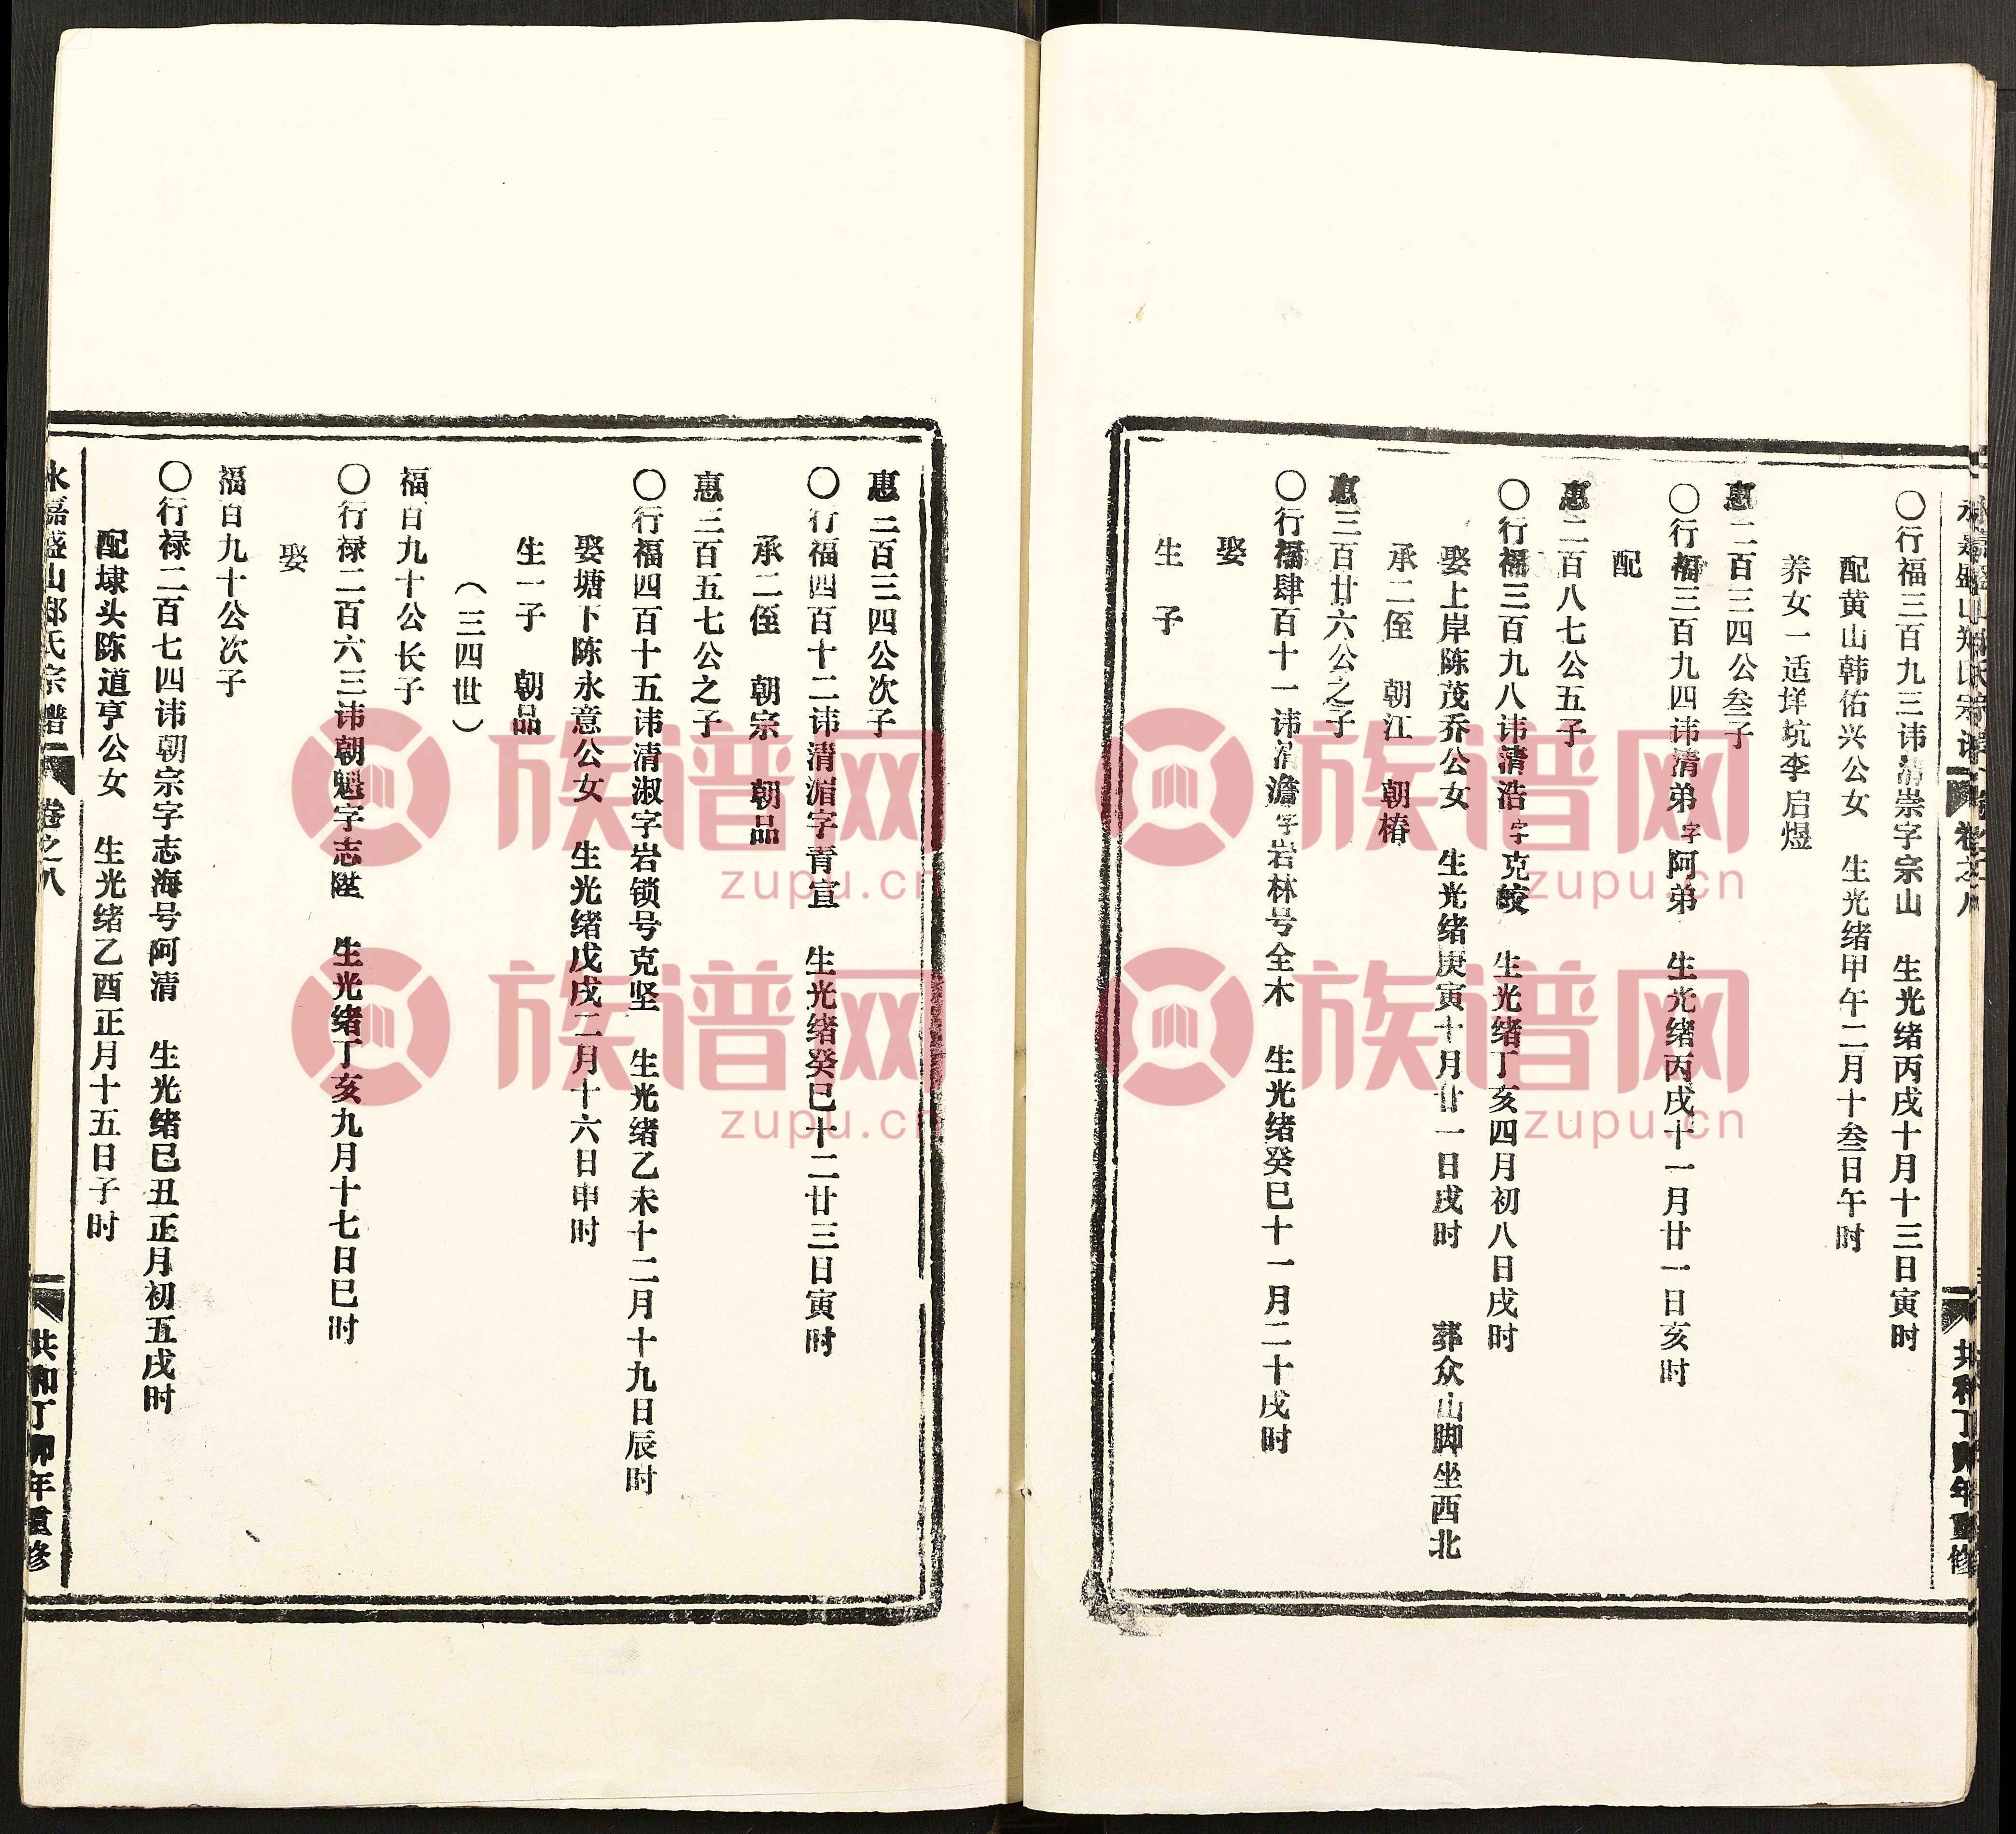 〇行福三百九三讳清崇字宗山　生光绪丙戌十月十三日寅时
配黄山韩佑兴公女　生光绪甲午二月十叁日午时
养女一适垟坑李启煜
惠二百三四公叁子
〇行福三百九四讳清弟字阿弟　生光绪丙戌十一月廿一日亥时
配
惠二百八七公五子
〇行福三百九八讳清浩字克蛟　生光绪丁亥四月初八日戌时
娶上岸陈茂乔公女　生光绪庚寅十月廿一日戌时　葬众山脚坐西北
承二侄　朝江　朝椿
惠三百廿六公之子
〇行福肆百十一讳清澹字岩林号全木　生光绪癸巳十一月二十戌时
娶
生　子
卷之八
共和丁卯年重修
惠二百三四公次子
〇行福四百十二讳清湄字青宣　生光绪癸巳十二廿三日寅时
承二侄　朝宗　朝品
惠三百五七公之子
〇行福四百十五讳清淑字岩锁号克坚　生光绪乙未十二月十九日辰时
娶塘下陈永意公女　生光绪戊戌二月十六日申时
生一子　朝品
（三四世）
福百九十公长子
〇行禄二百六三讳朝魁字志陞　生光绪丁亥九月十七日巳时
娶
福百九十公次子
〇行禄二百七四讳朝宗字志海号阿清　生光绪己丑正月初五戌时
配埭头陈道亨公女　生光绪乙酉正月十五日子时
永嘉盛山郑氏宗谱　卷之八　共和丁卯年重修
族谱网
zupu.cn
族谱网
zupu.cn
族谱网
zupu.cn
族谱网
zupu.cn